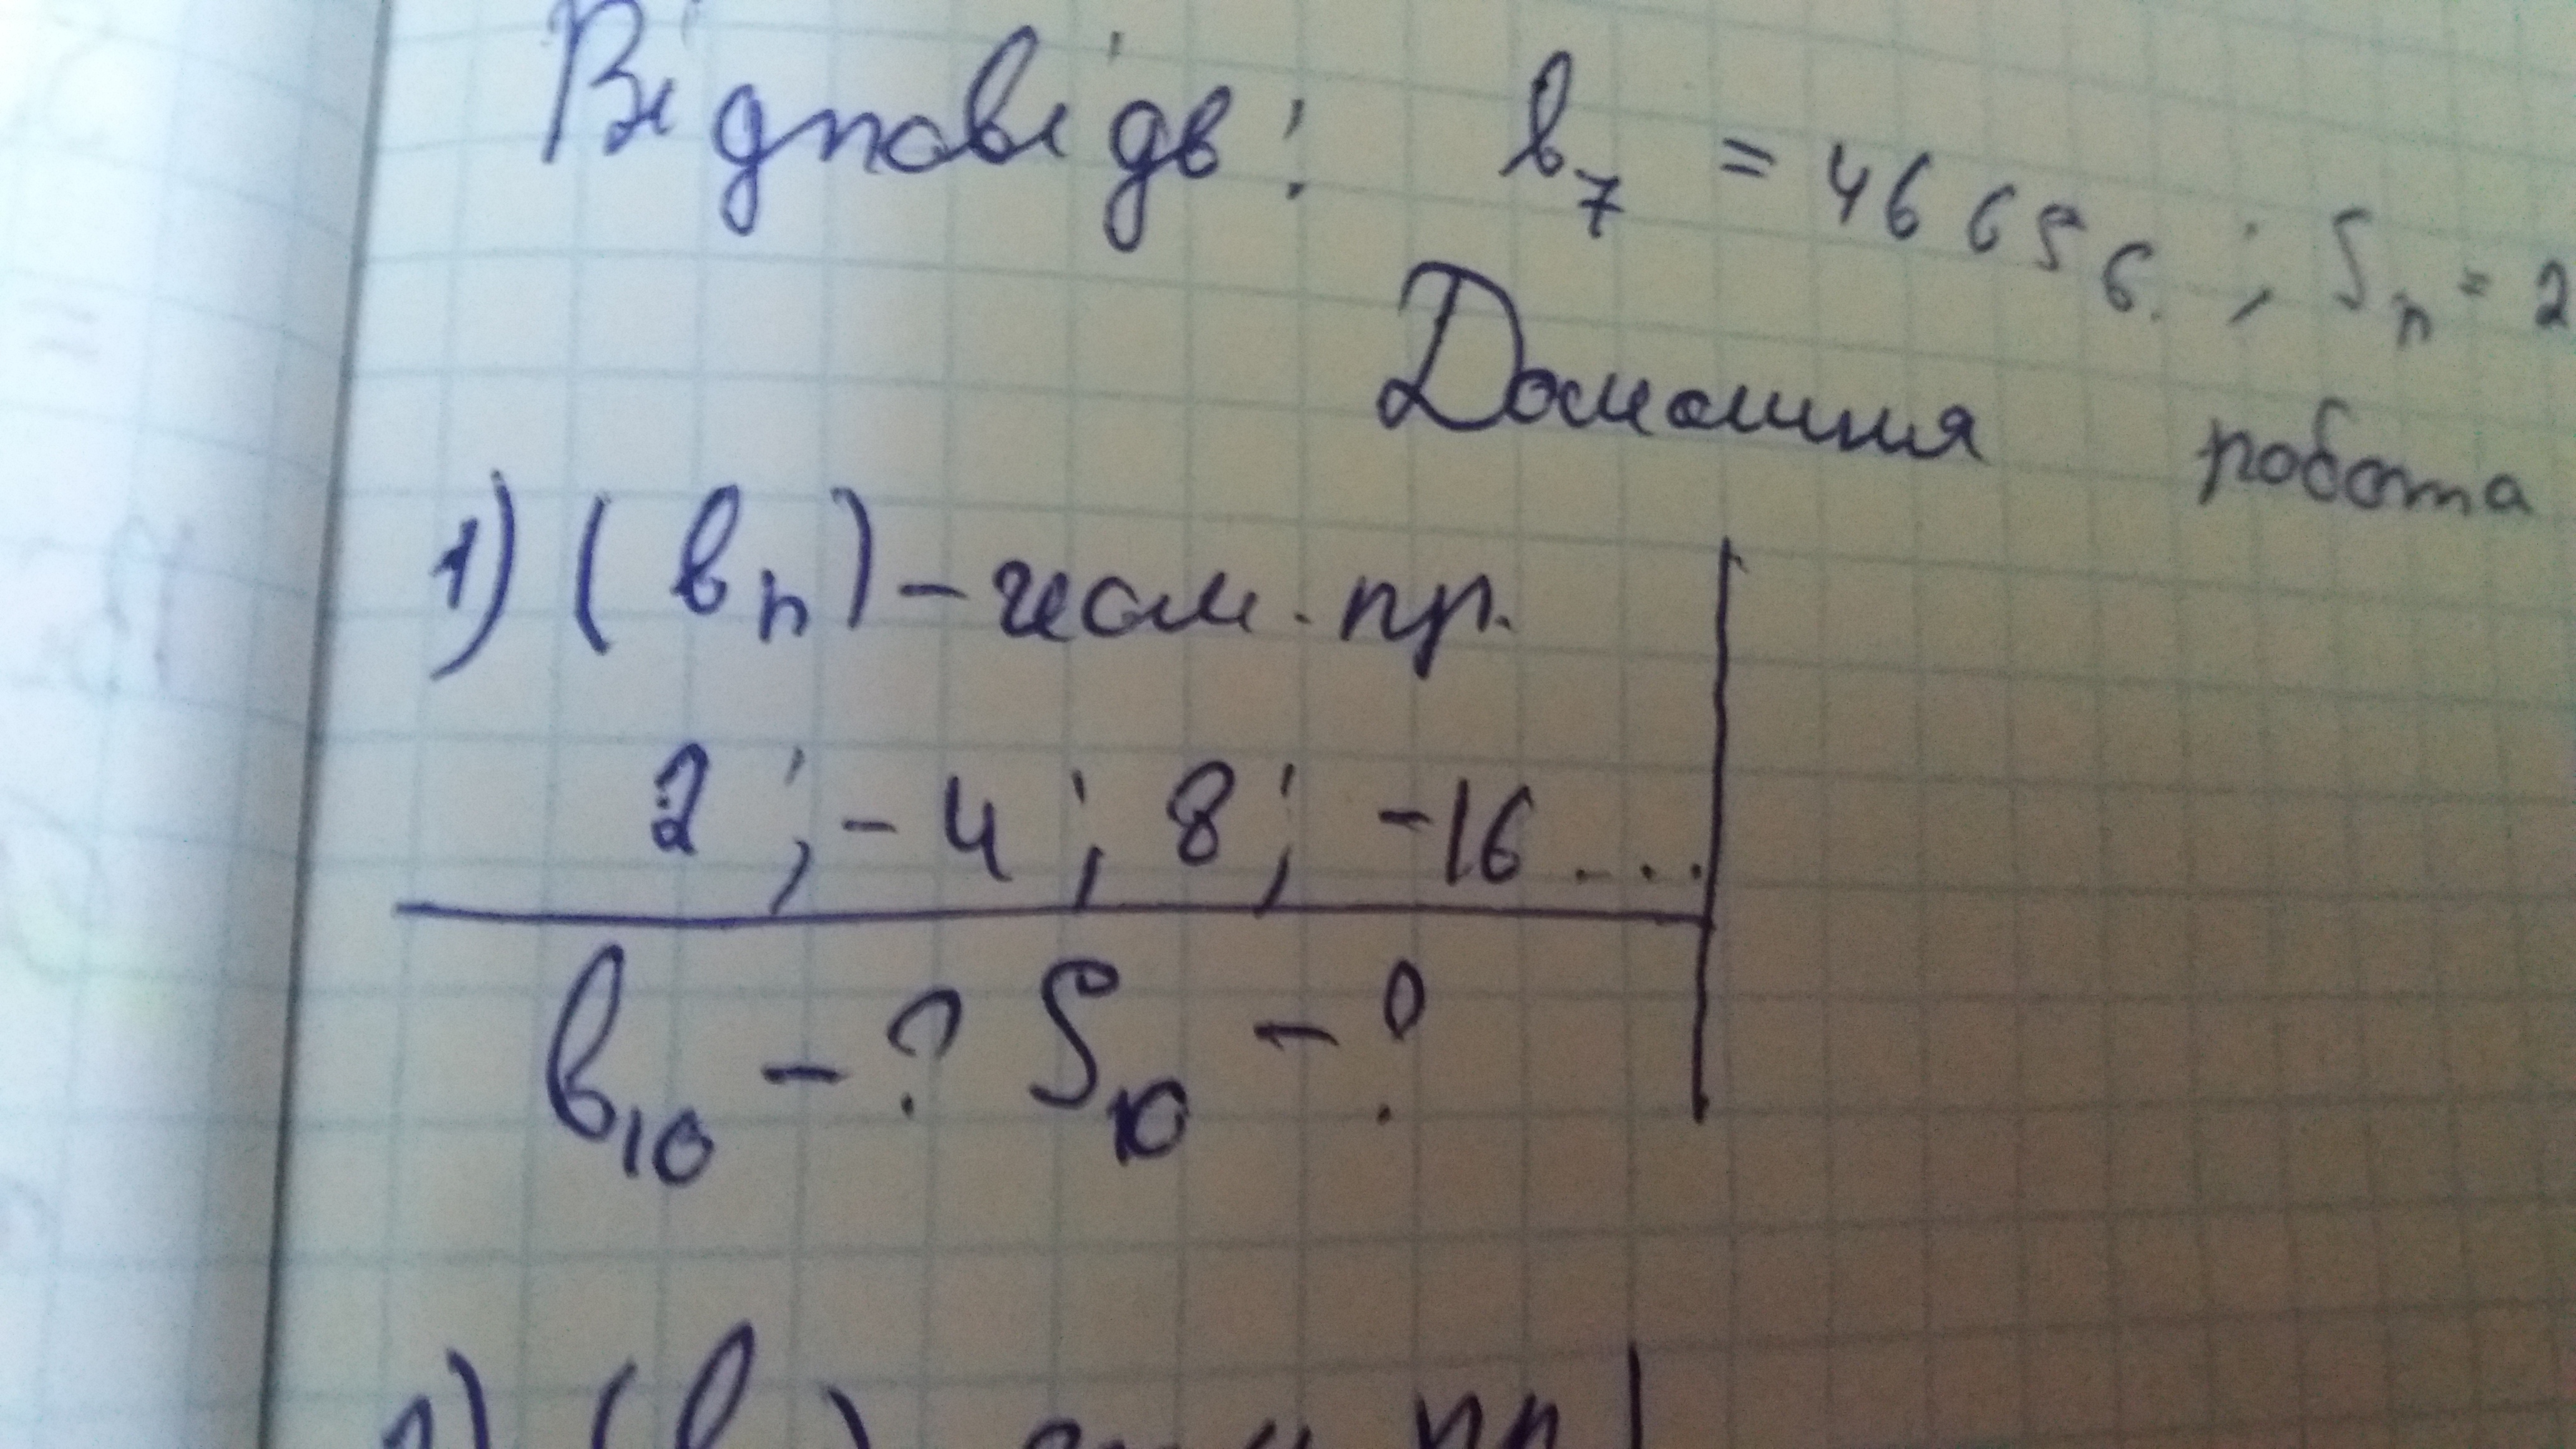 Відповідь: b₇ = 46656 ; Sₙ = 2
Домашня робота
1) (bₙ) – геом. пр.
2 ; -4 ; 8 ; -16 ...
b₁₀ – ? S₁₀ – ?